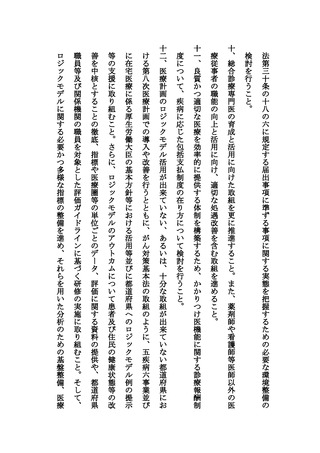 法第三十条の十八の六に規定する届出事項に準ずる事項に関する実態を把握するための必要な環境整備の
検討を行うこと。
十、総合診療専門医の育成と活用に向けた取組を更に推進すること。また、薬剤師や看護師等医師以外の医
療従事者の職能の向上と活用に向け、適切な処遇改善を含む取組を進めること。
十一、良質かつ適切な医療を効率的に提供する体制を構築するため、かかりつけ医機能に関する診療報酬制
度について、疾病に応じた包括支払制度の在り方について検討を行うこと。
十二、医療計画のロジックモデル活用が出来ていない、あるいは、十分な取組が出来ていない都道府県にお
ける第八次医療計画での導入や改善を行うとともに、がん対策基本法の取組のように、五疾病六事業並び
に在宅医療に係る厚生労働大臣の基本方針等における活用等並びに都道府県へのロジックモデル例の提示
等の支援に取り組むこと。さらに、ロジックモデルのアウトカムについて患者及び住民の健康状態等の改
善を中核とすることの徹底、指標や医療圏等の単位ごとのデータ、評価に関する資料の提供や、都道府県
職員等及び関係機関の職員を対象とした評価ガイドラインに基づく研修の実施に取り組むこと。そして、
ロジックモデルに関する必要かつ多様な指標の整備を進め、それらを用いた分析のための基盤整備、医療